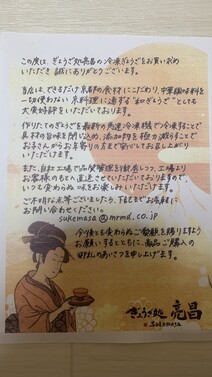 この度は、ぎょうざ処亮昌の冷凍ぎょうざをお買い求め
いただき 誠にありがとうございます。
当店は、できるだけ京都の食材にこだわり、中華調味料を
一切使わない 京料理に通ずる"和ぎょうざ"としても
大変好評をいただいております。
作りたてのぎょうざを最新の急速冷凍機で冷凍することで
素材の旨味を閉じ込め、添加物を極力減らすことで
お子さんからお年寄りの方まで安心してお召し上がり
いただけます。
また、自社工場で品質管理を徹底しつつ、工場より
お客様のもとへ直送させていただいておりますので、
いつも変わらぬ味をお楽しみいただけます。
ご不明な点等ございましたら、下記までお気軽に
お問い合わせください。
sukemasa@mrmd.co.jp
今後とも変わらぬご愛顧を賜りますよう
お願いするとともに、商品ご購入の
御礼のあいさつを申し上げます。
ぎょうざ処 亮昌
sukemasa